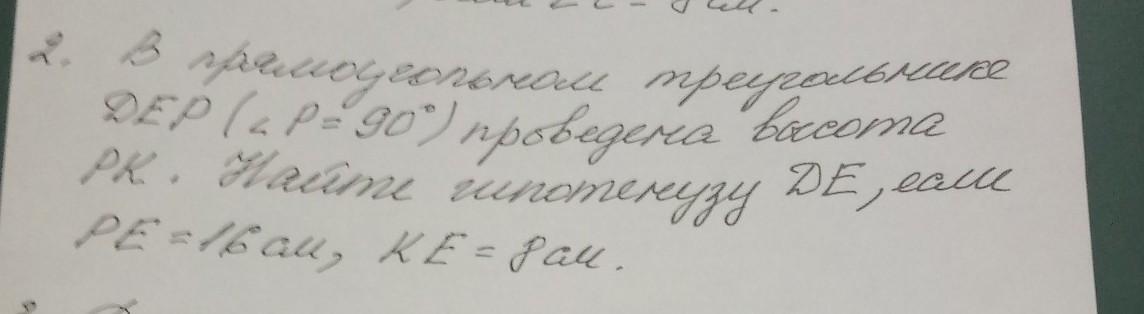 2. В прямоугольном треугольнике
DEP (∠P=90°) проведена высота
PK. Найти гипотенузу DE, если
PE=16 см, KE=8 см.